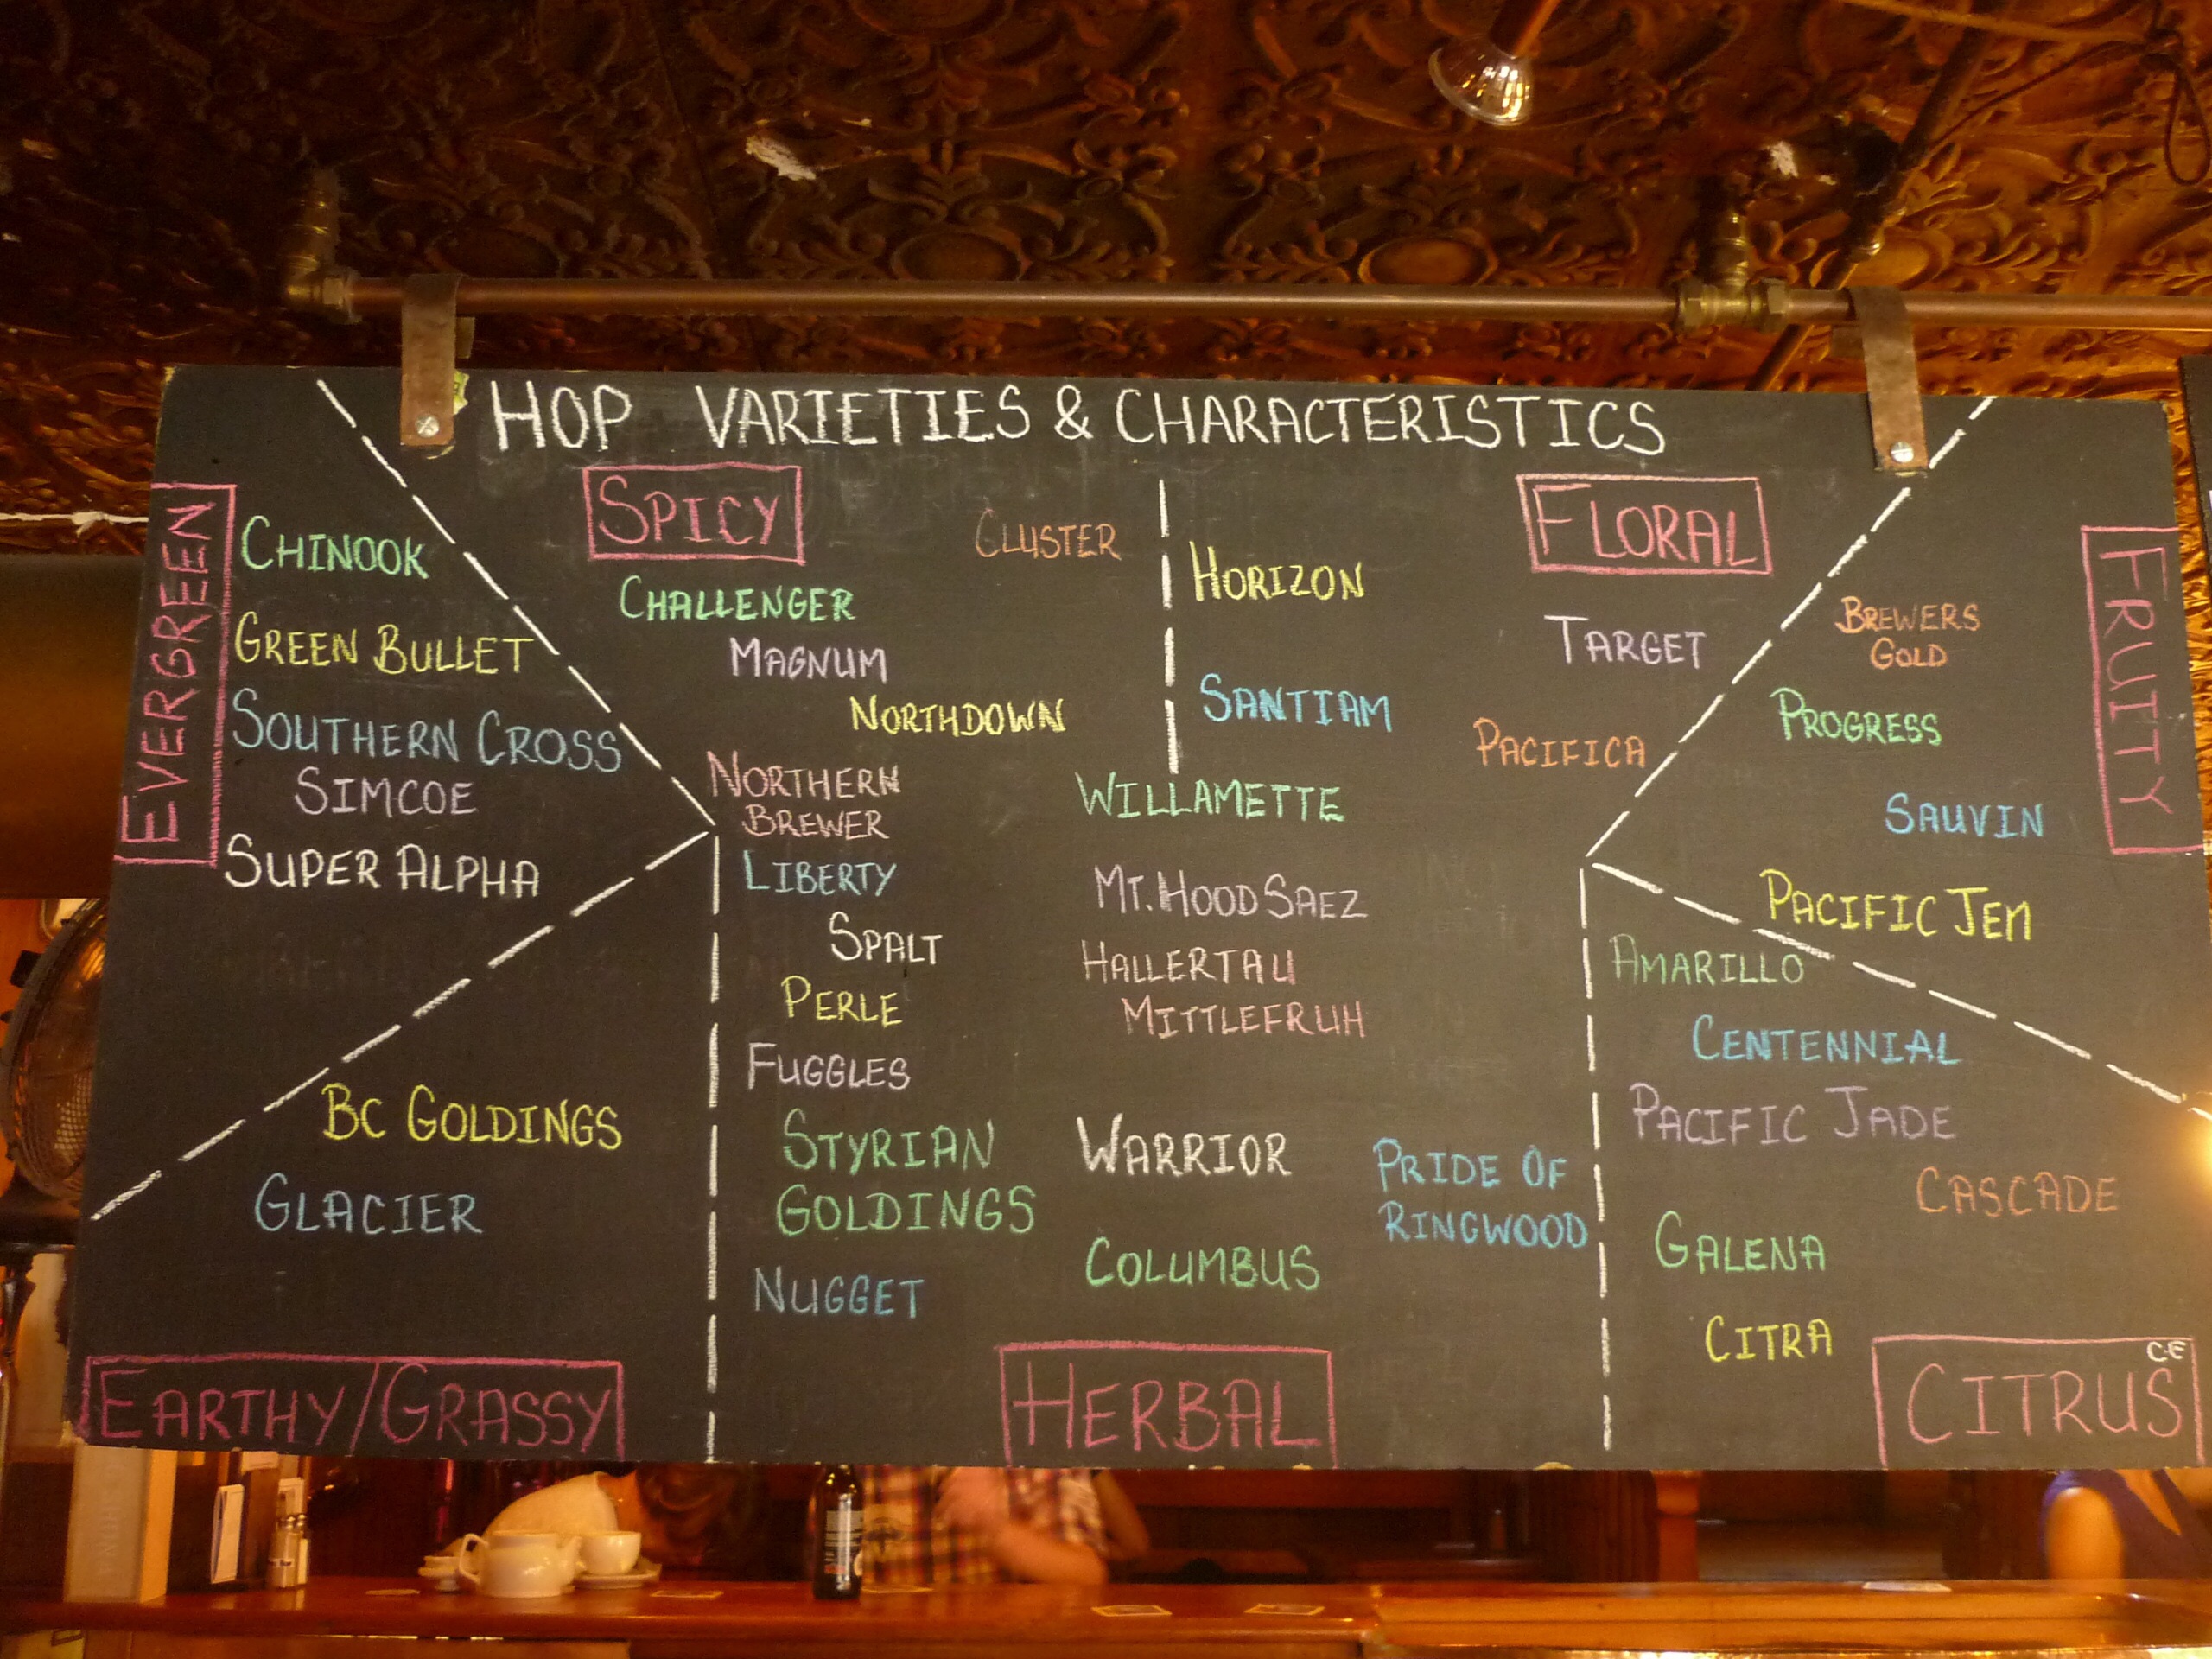 HOP VARIETIES & CHARACTERISTICS
EVERGREEN
CHINOOK
GREEN BULLET
SOUTHERN CROSS
SIMCOE
SUPER ALPHA
SPICY
CLUSTER
CHALLENGER
MAGNUM
NORTHDOWN
NORTHERN
BREWER
LIBERTY
SPALT
PERLE
FUGGLES
STYRIAN
GOLDINGS
NUGGET
FLORAL
HORIZON
TARGET
SANTIAM
PACIFICA
WILLAMETTE
MT. HOOD SAEZ
HALLERTAU
MITTLEFRUH
WARRIOR
PRIDE OF
RINGWOOD
COLUMBUS
HERBAL
FRUITY
BREWERS
GOLD
PROGRESS
SAUVIN
PACIFIC JEM
AMARILLO
CENTENNIAL
PACIFIC JADE
CASCADE
GALENA
CITRA
C.E
CITRUS
BC GOLDINGS
GLACIER
EARTHY/GRASSY